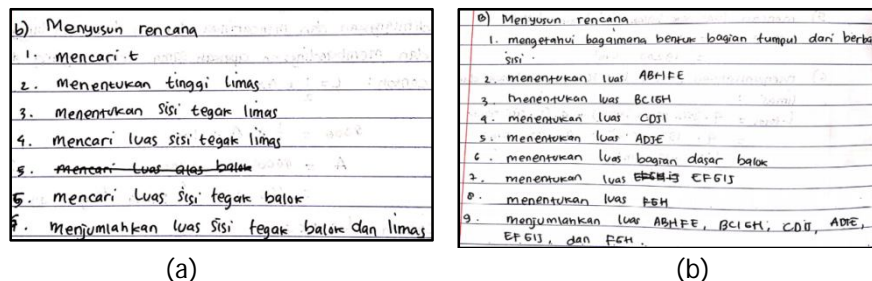 b) Menyusun rencana
1. mencari t
2. menentukan tinggi limas
3. menentukan sisi tegak limas
4. mencari luas sisi tegak limas
5. mencari luas alas balok
5. mencari luas sisi tegak balok
6. menjumlahkan luas sisi tegak balok dan limas
(a)
B) Menyusun rencana
1. mengetahui bagaimana bentuk bagian tumpul dari berba
sisi.
2. menentukan luas ABHFE
3. menentukan luas BCIGH
4. menentukan luas CDJI
5. menentukan luas ADJE
6. menentukan luas bagian dasar balok
7. menentukan luas EFGIJ
8. menentukan luas FGH
9. menjumlahkan luas ABHFE, BCIGH, CDJI, ADJE,
EFGIJ, dan FGH.
(b)